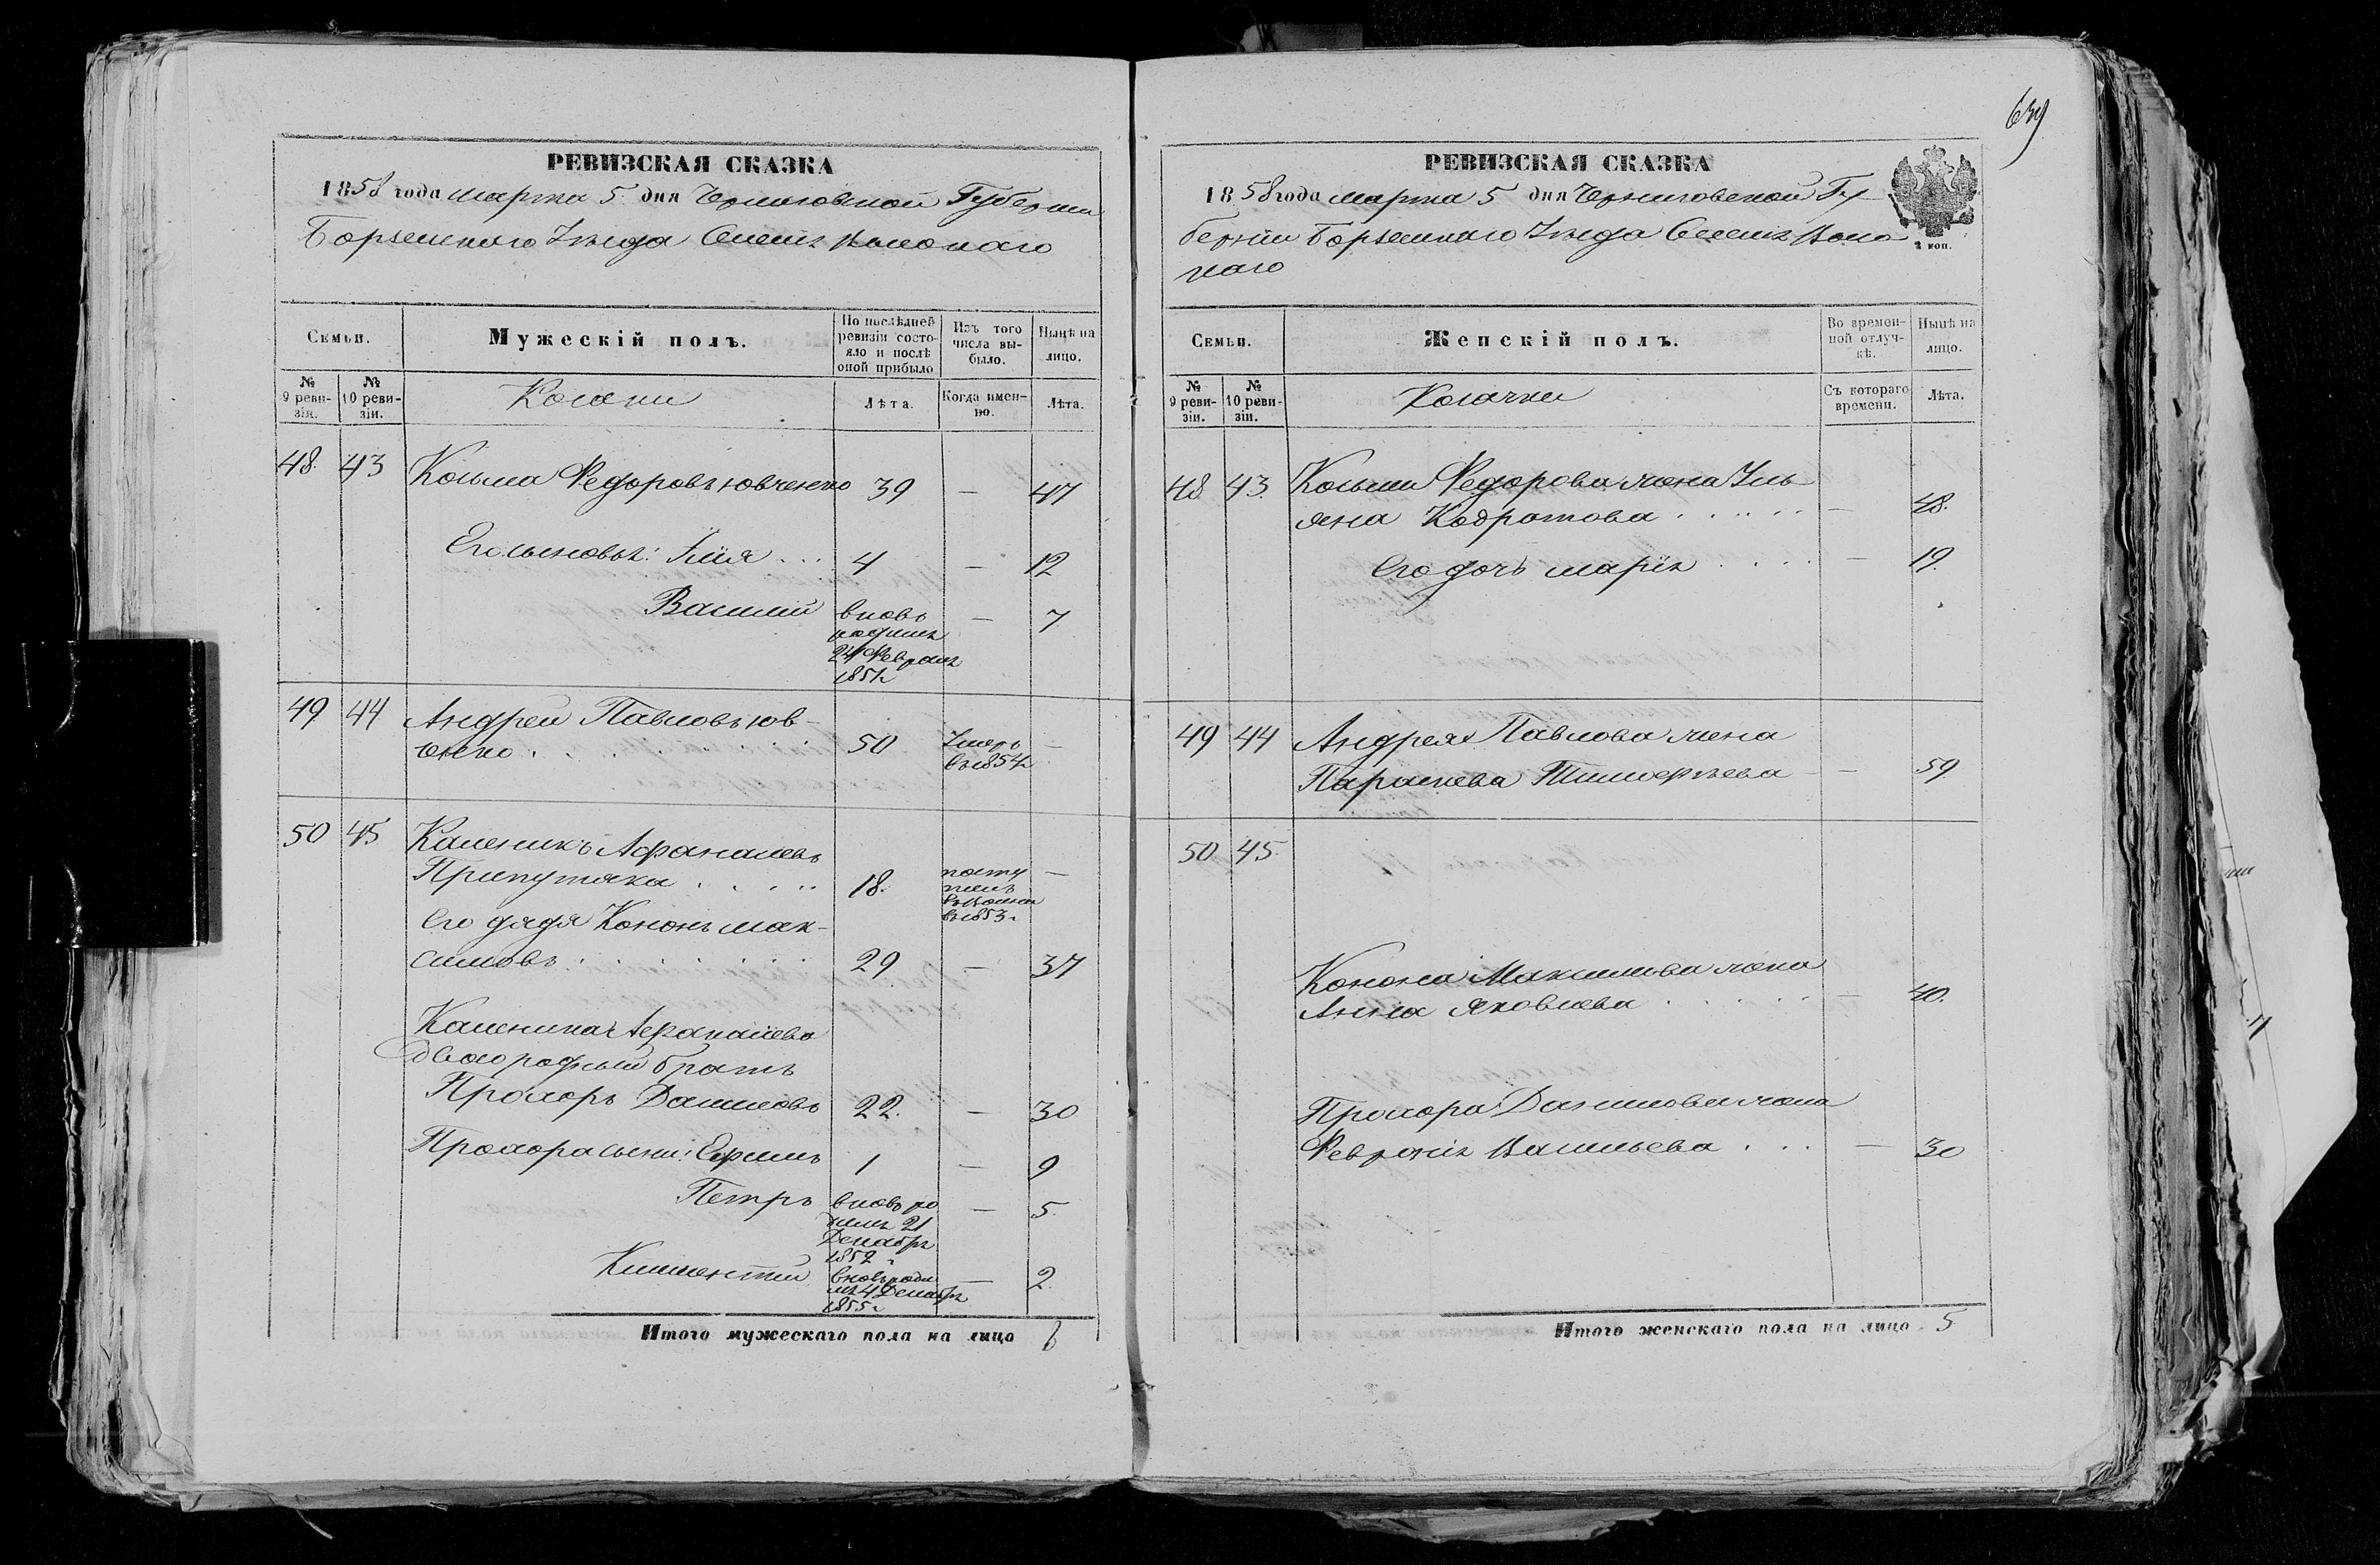 РЕВИЗСКАЯ СКАЗКА
1858 года марта 5 дня Черниговской Губернии
Борзенского Уезда Селенія
Семьи.
Мужескій полъ.
По послѣдней ревизіи состояло и послѣ оной прибыло
Изъ того числа выбыло.
Нынѣ на лицо.
№ 9 ревизіи.
№ 10 ревизіи.
Козаки
Лѣта.
Когда именно.
Лѣта.
48. 43 Козьма Федоровъ Ювченко 39 — 47
Его сыновья: Илія ... 4 — 12
Василій вновь — 7
рожденъ
24 Февраля
1851г
49 44 Андрей Павловъ Юв-
ченко . . . . . . 50 Умеръ —
въ 1854г
50 45 Каленикъ Афанасіевъ
Припутняка . . . . 18. посту —
пилъ
въ 1853г
Его дядя Кононъ Мак-
симовъ . . . . . . 29 — 37
Каленика Афанасіева
двоюродный братъ
Прохоръ Даниловъ 22. — 30
Прохора сыны: Ефимъ 1 — 9
Петръ вновь ро — 5.
21
Декабря
1852
Климентій вновь роди — 2.
4 Декабря
1855г
Итого мужескаго пола на лицо 8
639
РЕВИЗСКАЯ СКАЗКА
1858 года марта 5 дня Черниговской Гу-
берніи Борзенскаго Уезда Селенія
2 коп.
Семьи.
Женскій полъ.
Во временной отлучкѣ.
Нынѣ на лицо.
№ 9 ревизіи.
№ 10 ревизіи.
Козачки
Съ котораго времени.
Лѣта.
48 43. Козьмы Федорова жена Уль-
яна Кодратова . . . . . — 48.
Его дочь Марія . . . . — 19.
49 44 Андрея Павлова жена
Параскева Тимофѣева — 59
50 45.
Конона Максимова жена
Анна Яковлева . . . . . — 40.
Прохора Данилова жена
Февронія Васильева . . . — 30
Итого женскаго пола на лицо 5